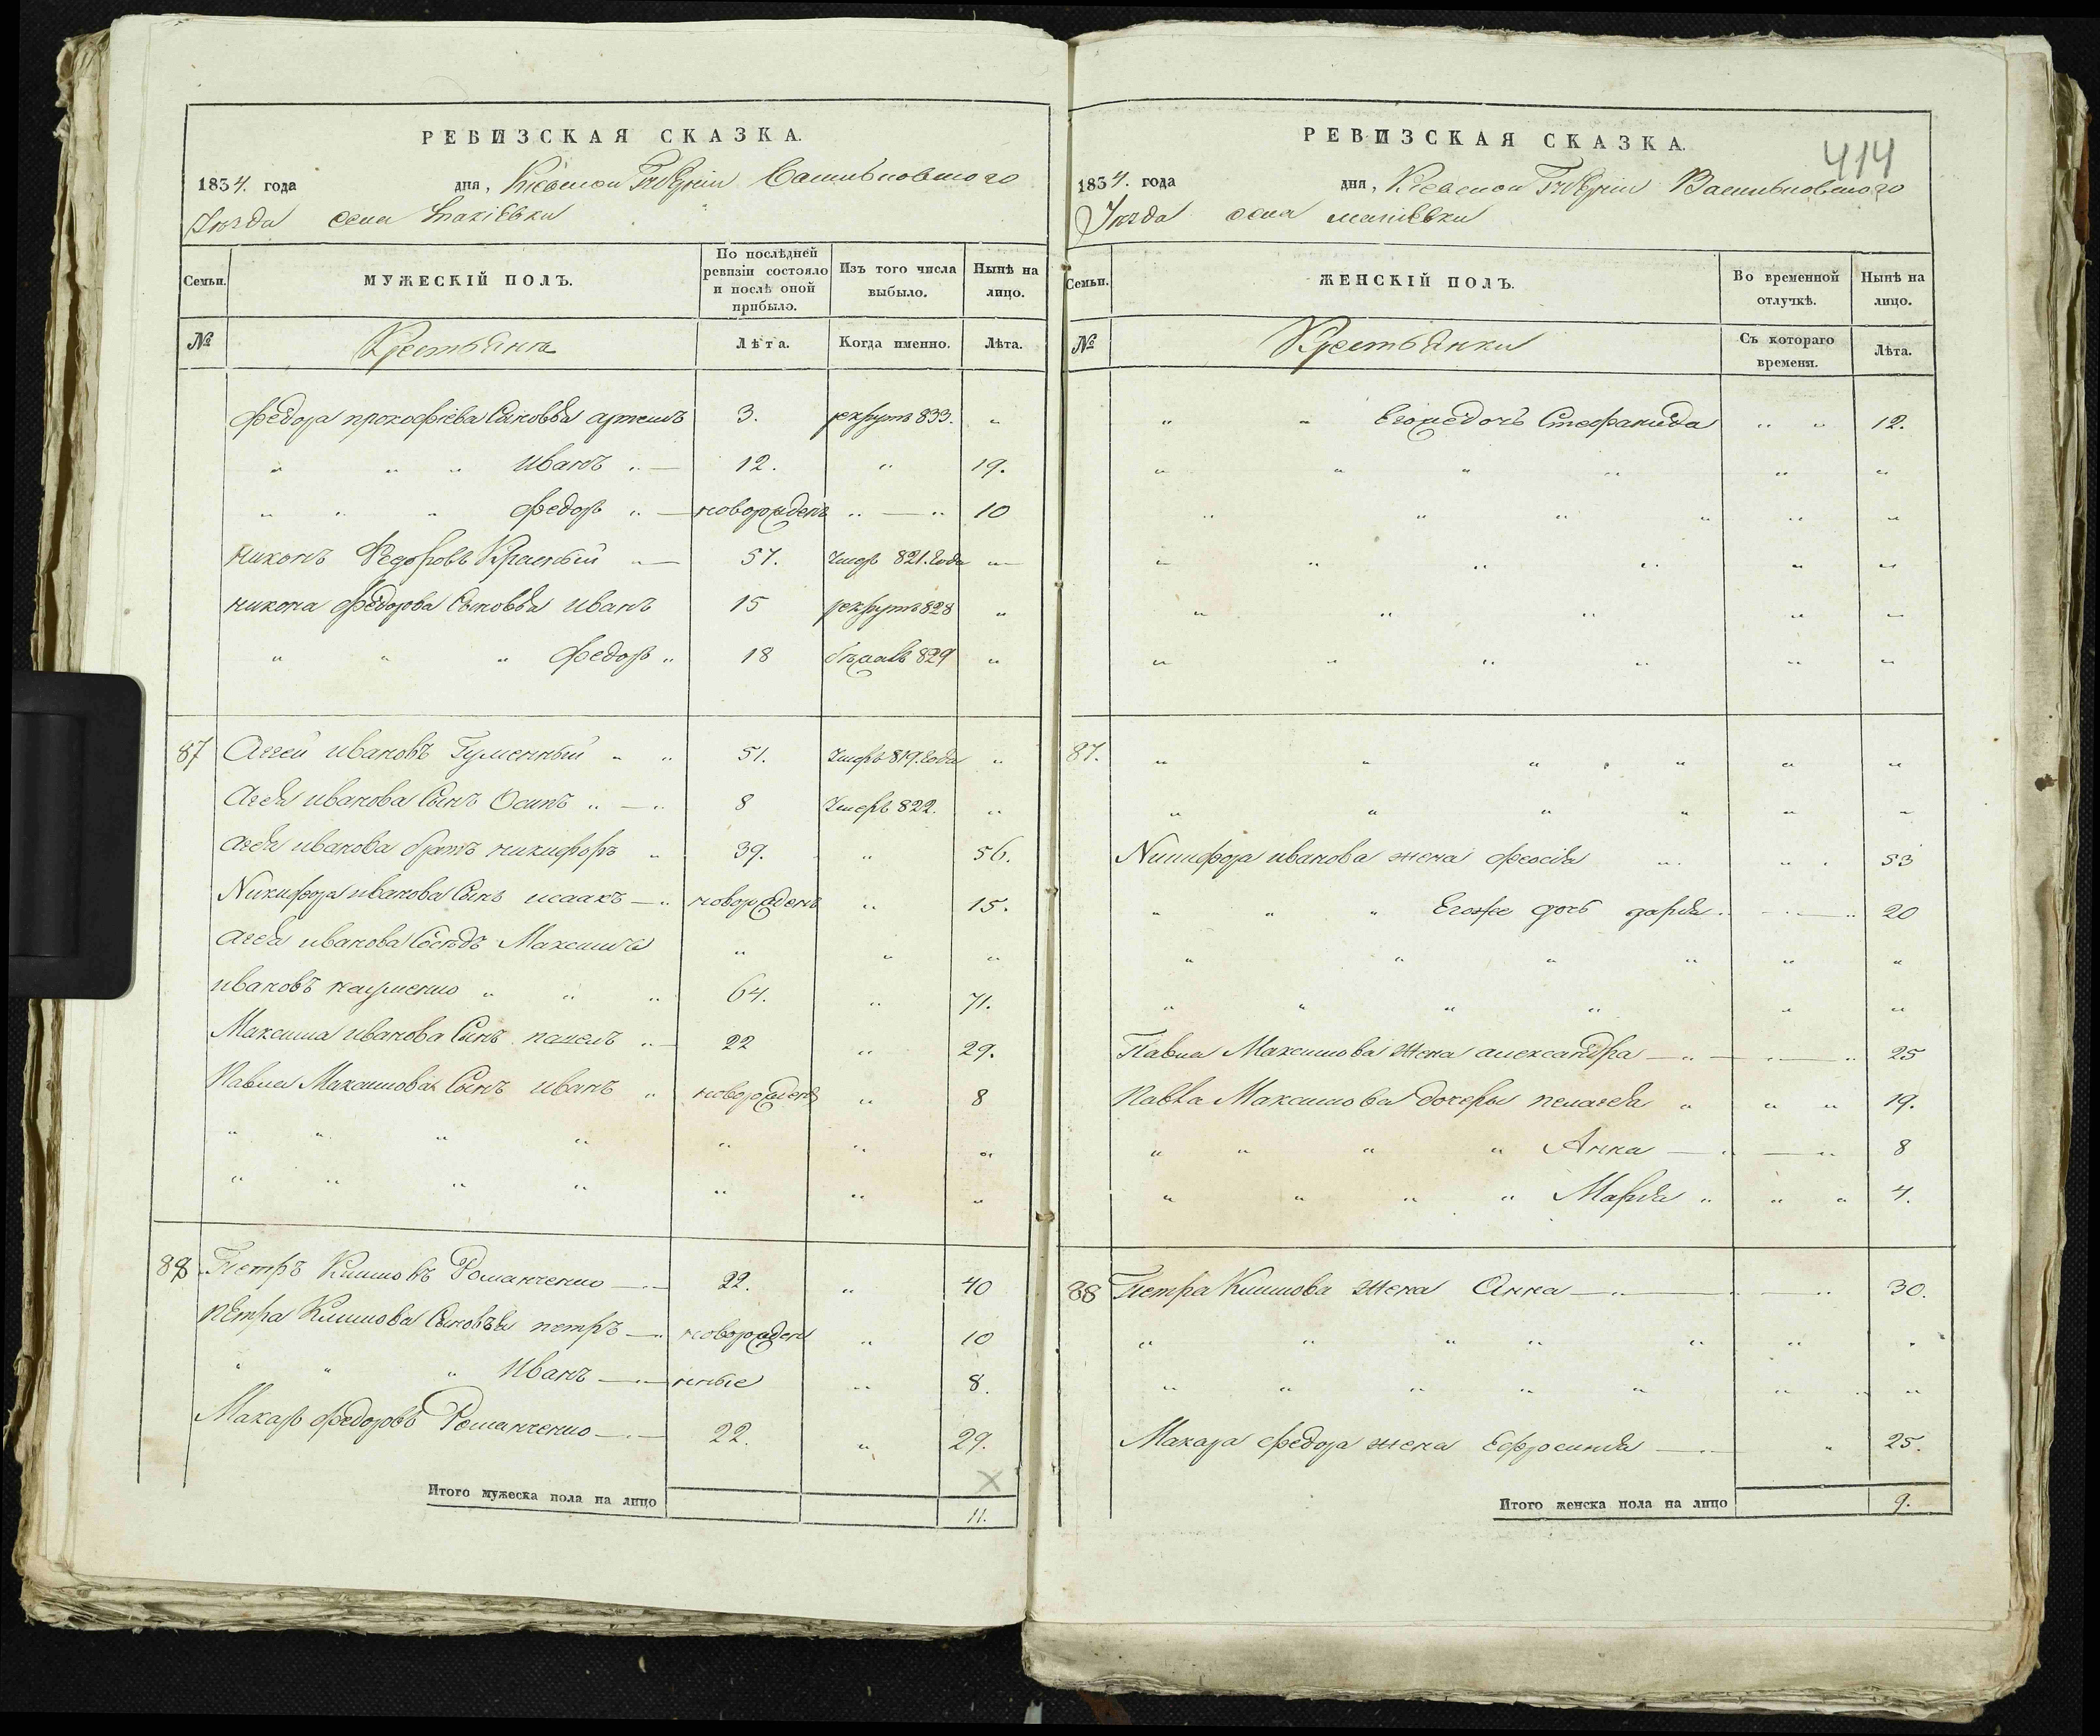 РЕВИЗСКАЯ СКАЗКА.
1834. года дня, Кіевской Губерніи Васильковского
Уезда села Матіевки
Семьи. МУЖЕСКІЙ ПОЛЪ. По послѣдней ревизіи состояло и послѣ оной прибыло. Изъ того числа выбыло. Нынѣ на лицо.
№ Крестьянъ Лѣта. Когда именно. Лѣта.
федора прокофіева Сыновья артемъ 3. рекрутъ 833. "
" " " Иванъ " — 12. " 19.
" " " федоръ " — новорожденъ " — " 10
никонъ Федоровъ Красный " — 57. Умеръ 821. Года " —
никона федорова Сыновья иванъ 15 рекрутъ 828 "
" " " федоръ " 18 бежалъ 829 "
87 Аггей ивановъ Гуменный " " 51. Умеръ 819. Года "
Агея иванова Сынъ Осипъ " — " 8 Умеръ 822. "
агея иванова братъ никифоръ " 39. " 56.
Никифора иванова Сынъ исаакъ — " новорожденъ " 15.
агея иванова Соседъ Максимъ " " "
ивановъ " " " 64. " 71.
Максима иванова Сынъ павелъ " — 22 " 29.
Павла Максимова Сынъ иванъ " новорожденъ " 8
" " " " " " "
" " " " " " "
88 Петръ Климовъ Романченко — " — 22. " 40
петра Климова Сыновья петръ — " новорожден " 10
" " " Иванъ — " — нные " 8.
Макаръ федоровъ Романченко — " — 22. " 29.
Итого мужеска пола на лицо 11.
РЕВИЗСКАЯ СКАЗКА.
414
1834. года дня, Кіевской Губерніи Васильковского
Уезда села матіевки
Семьи. ЖЕНСКІЙ ПОЛЪ. Во временной отлучкѣ. Нынѣ на лицо.
№ Крестьянки Съ котораго времени. Лѣта.
" " Егожедочь Стефанида " " 12.
" " " " " "
" " " " " "
" " " " " "
" " " " "
" " " " " "
87. " " " " " "
" " " " " "
Никифора иванова жена феосія " " " 53
" " " Егоже дочь дарія " — " — " 20
" " " " " "
" " " " " "
Павла Максимова жена александра — " — " — " 25
Павла Максимова дочеры пелагея " " " 19.
" " " " Анна — " — " 8
" " " " Марія " " " 4.
88 Петра Климова жена Анна — " — " 30.
" " " " " " "
" " " " " " "
Макара федора жена Ефросинія — " — " 25.
Итого женска пола на лицо 9.